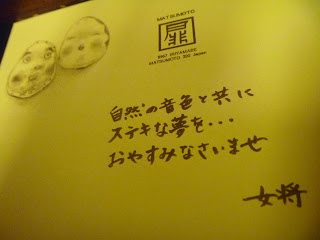 MATSUMOTO
扉
MATSUMOTO 390 Japan
自然の音色と共に
ステキな夢を・・・
おやすみなさいませ
女将